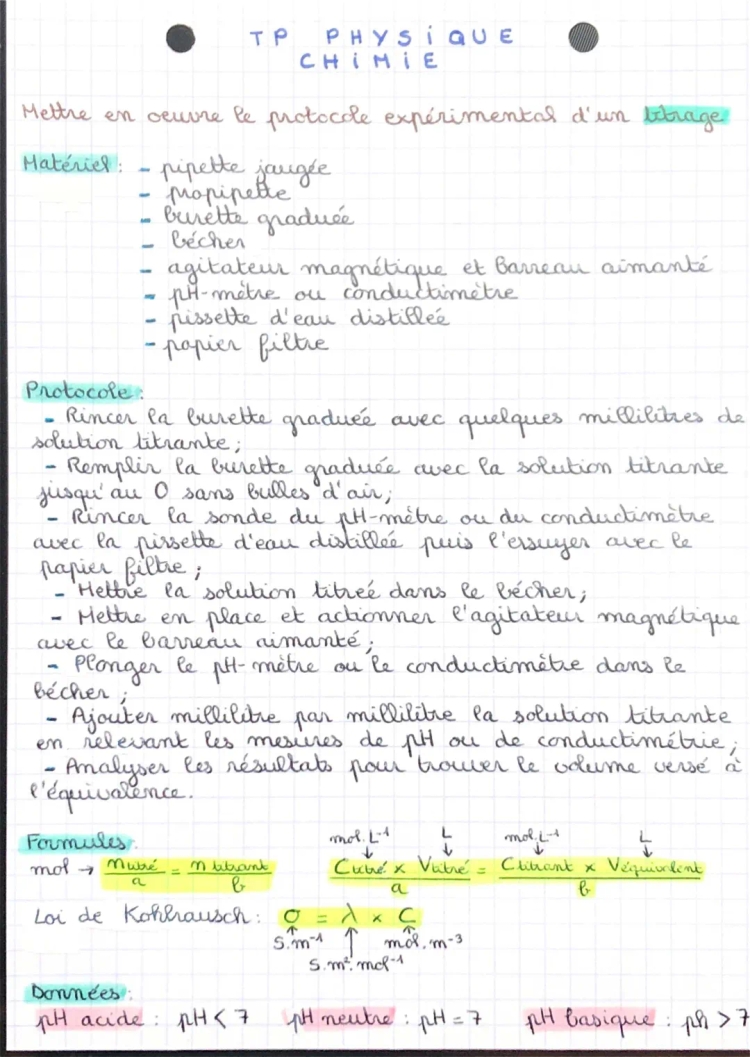 TP PHYSiQUE
CHiMiE
Mettre en oeuvre le protocole expérimental d'un titrage
Matériel :
- pipette jaugée
- propipette
- burette graduée
- bécher
- agitateur magnétique et barreau aimanté
- pH-mètre ou conductimètre
- pissette d'eau distillée
- papier filtre
Protocole :
- Rincer la burette graduée avec quelques millilitres de
solution titrante ;
- Remplir la burette graduée avec la solution titrante
jusqu'au 0 sans bulles d'air ;
- Rincer la sonde du pH-mètre ou du conductimètre
avec la pissette d'eau distillée puis l'essuyer avec le
papier filtre ;
- Mettre la solution titrée dans le bécher ;
- Mettre en place et actionner l'agitateur magnétique
avec le barreau aimanté ;
- Plonger le pH-mètre ou le conductimètre dans le
bécher ;
- Ajouter millilitre par millilitre la solution titrante
en relevant les mesures de pH ou de conductimétrie ;
- Analyser les résultats pour trouver le volume versé à
l'équivalence.
Formules :
mol.L-1 L mol.L-1 L
mol → n titré / a = n titrant / b
C titré × V titré / a = C titrant × V équivalent / b
Loi de Kohlrausch : σ = λ × C
S.m-1 mol.m-3
S.m².mol-1
Données :
pH acide : pH < 7 pH neutre : pH = 7 pH basique : ph > 7